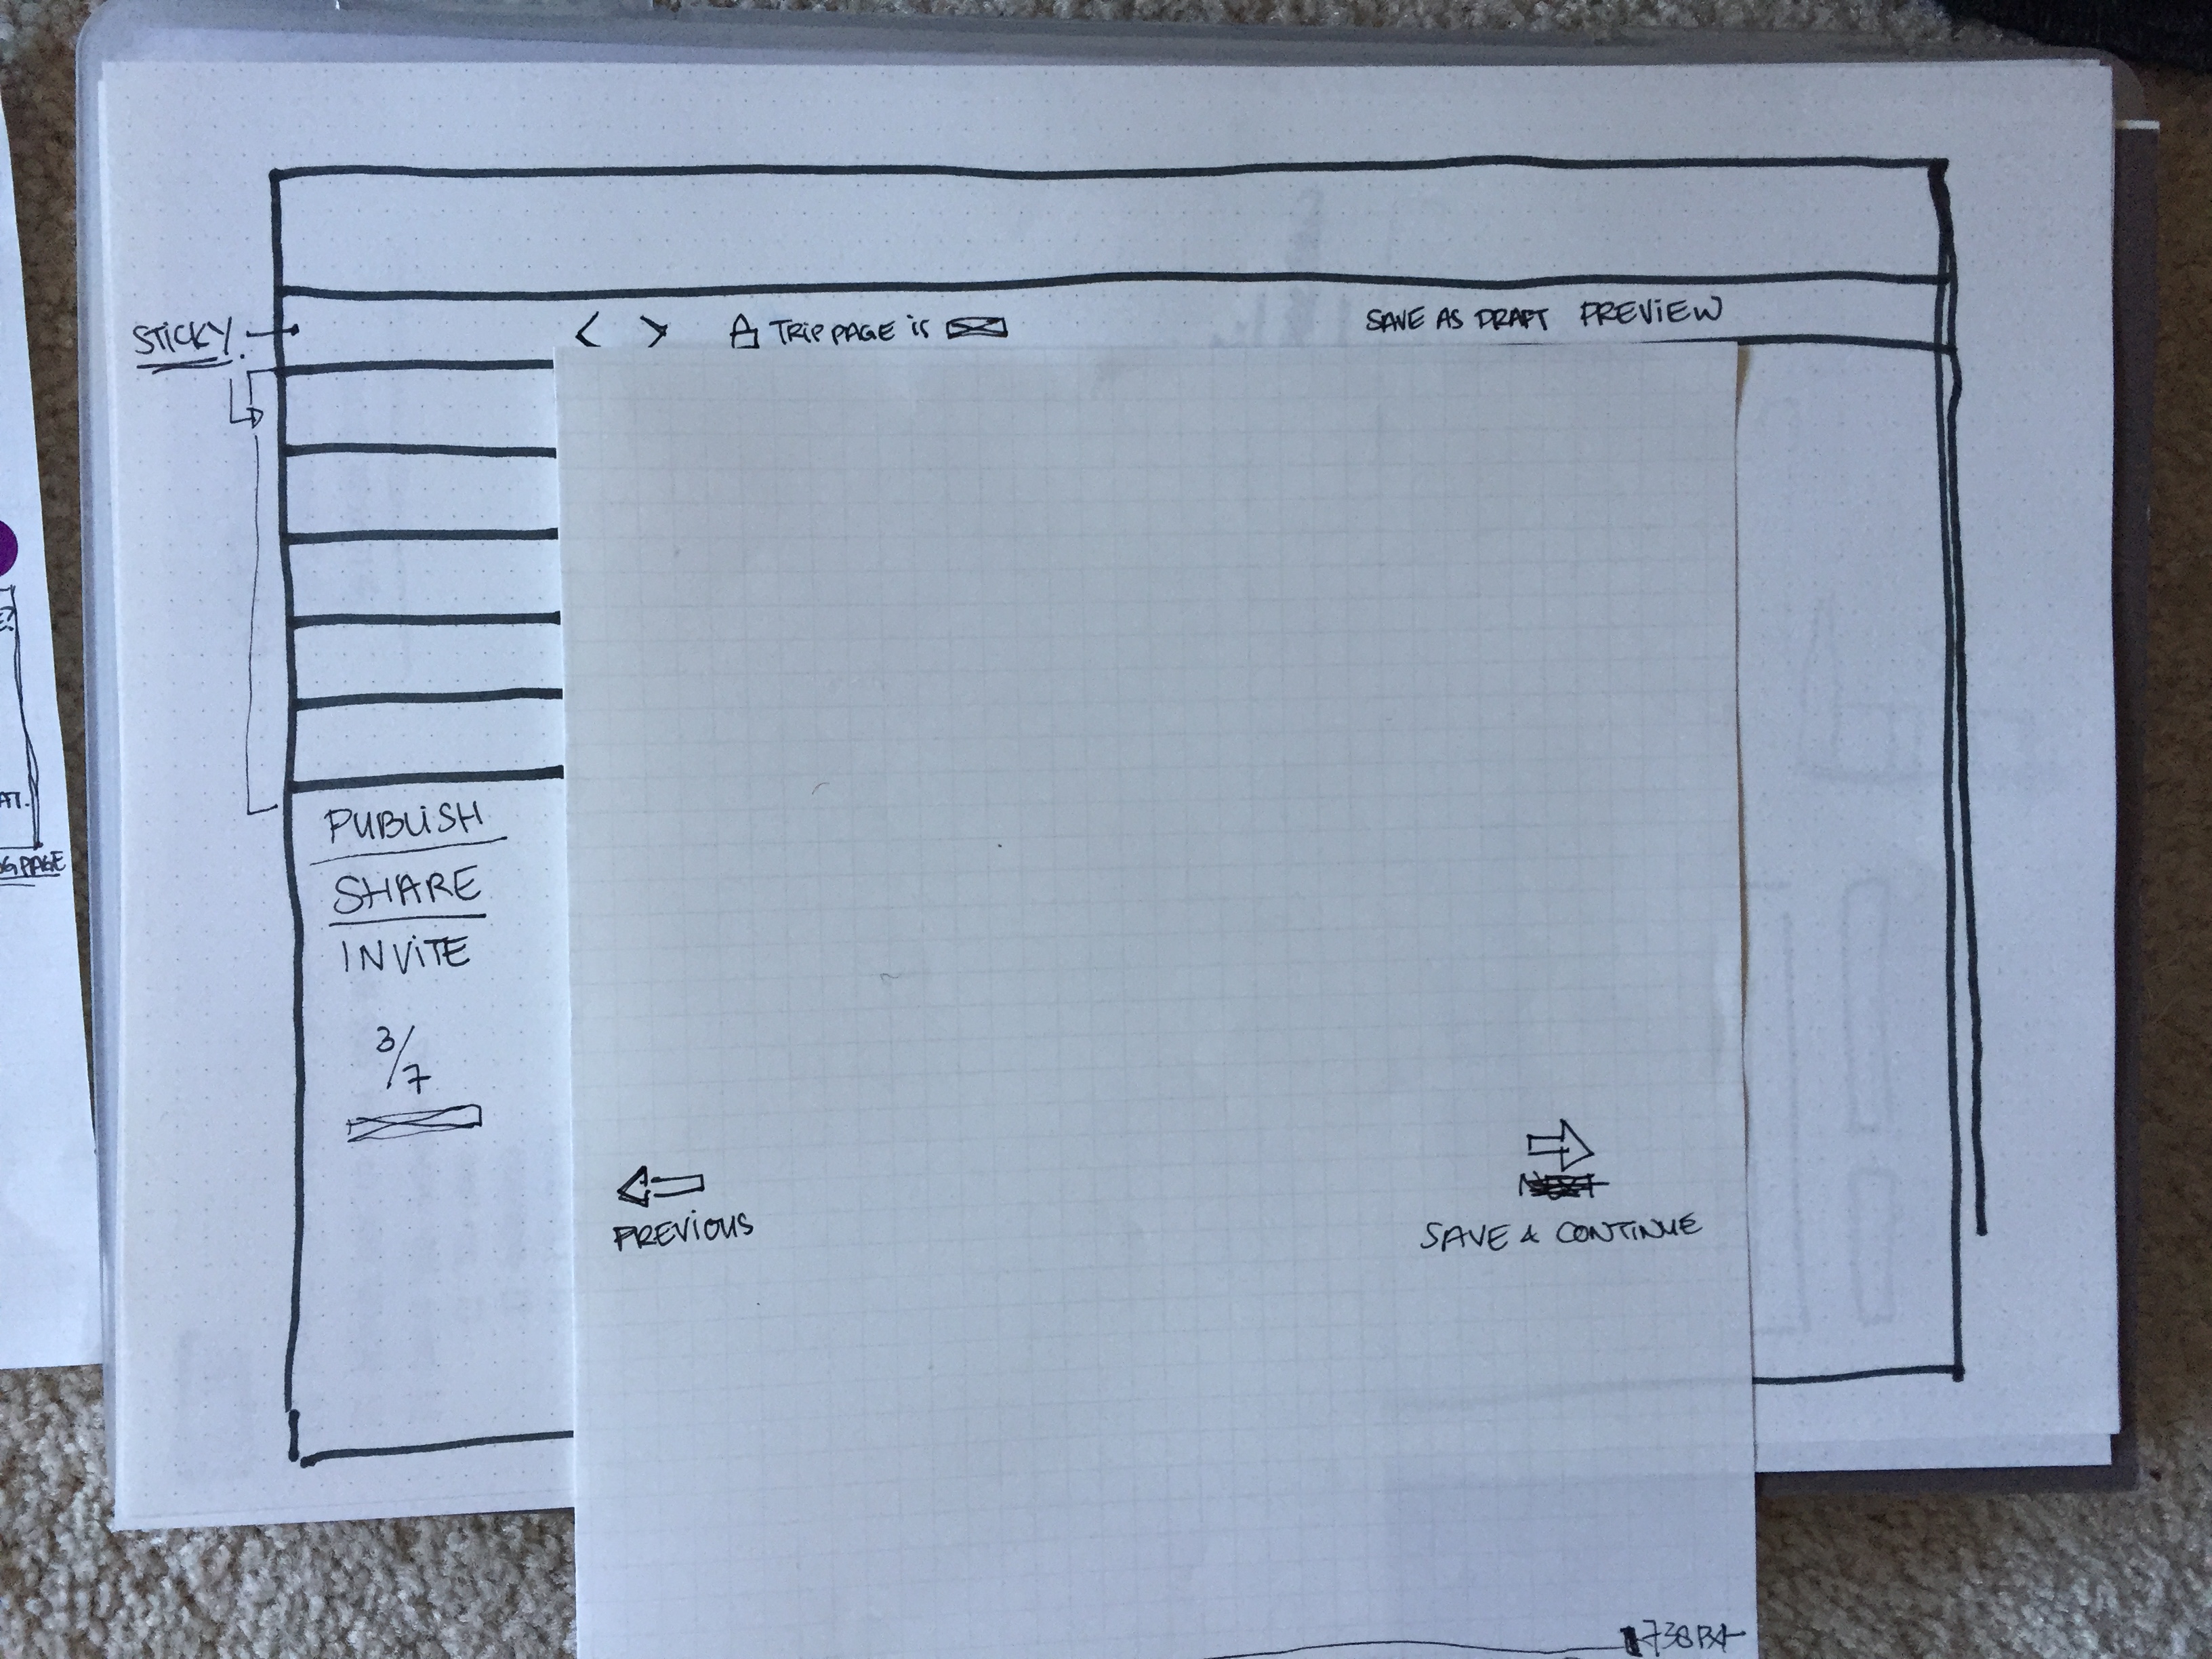 STICKY.
< > TRIP PAGE is
SAVE AS DRAFT PREVIEW
PUBLISH
SHARE
INVITE
3/7
PREVIOUS
SAVE & CONTINUE
PAGE